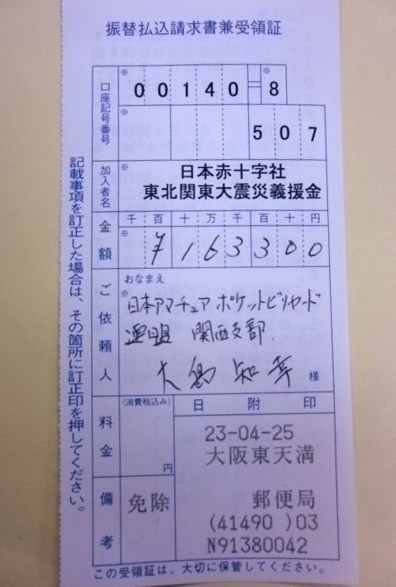 振替払込請求書兼受領証
口座記号番号
※ 00140-8
507
加入者名
※
日本赤十字社
東北関東大震災義援金
金額
千百十万千百十円
※ ¥163300
ご依頼人
おなまえ
※
日本アマチュアポケットビリヤード
連盟 関西支部
大島知幸 様
料金
(消費税込み)
円
日附印
23-04-25
大阪東天満
備考
免除
郵便局
(41490 )03
N91380042
記載事項を訂正した場合は、その箇所に訂正印を押してください。
この受領証は、大切に保管してください。